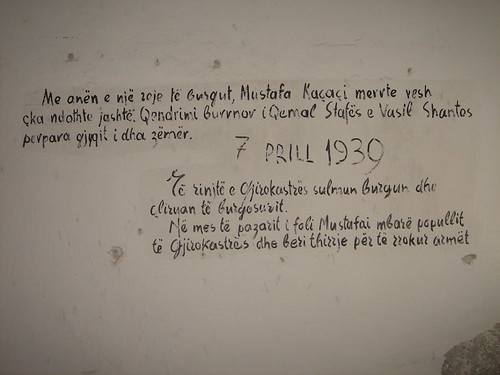 Me anën e një roje të burgut, Mustafa Kaçaçi merrte vesh
çka ndothte jashtë. Qendrimi burrnor i Qemal Stafës e Vasil Shantos
perpara gjyqit i dha zëmër.
7 PRILL 1939
Të rinjtë e Gjirokastrës sulmun burgun dhe
çliruan të burgosurit.
Në mes të pazarit i foli Mustafai mbarë popullit
të Gjirokastrës dhe beri thirrje për të rrokur armët